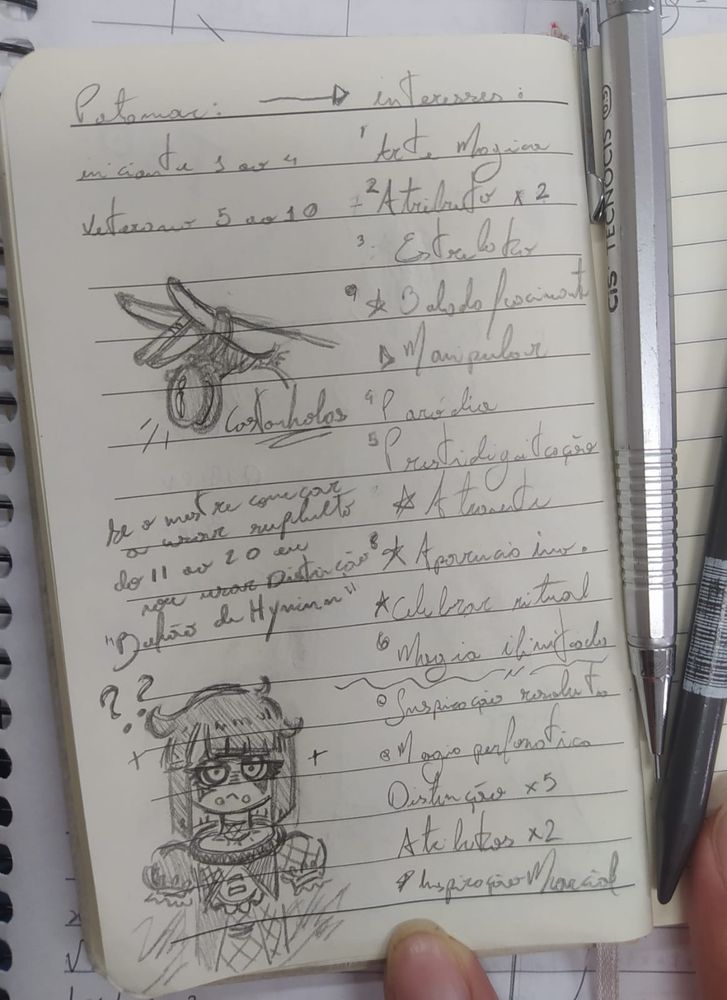 Patamar: → interesses:
iniciante 1 ao 4
veterano 5 ao 10
1 Arte Magica
2 Atributo x 2
3. Estrelato
★ Balada fascinante
▷ Manipular
4 Paródia
5 Prestidigitação
★ Atraente
8 ★ Aparencia inv.
★ Celebrar ritual
6 Magia ilimitada
Inspiração resoluta
Magia performatica
Distinção x5
Atributos x2
Inspiração Marcial
Castanholas
Se o mestre começar
a usar suplemento
do 11 ao 20 eu
vou usar Distinção
"Bufão de Hyninn"
??
CIS TECNOCIS 0.5